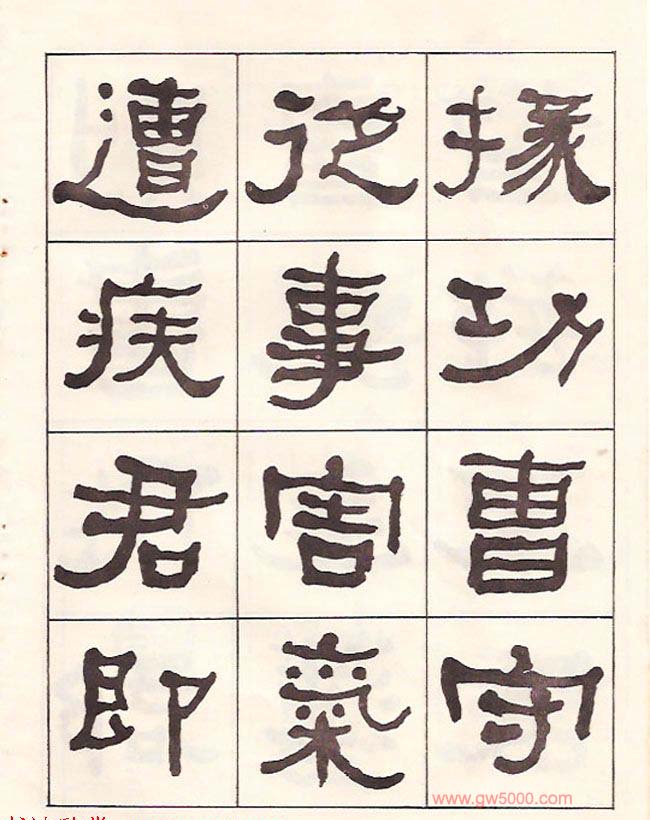 掾功曹守
從事害氣
遭疾君即
www.gw5000.com